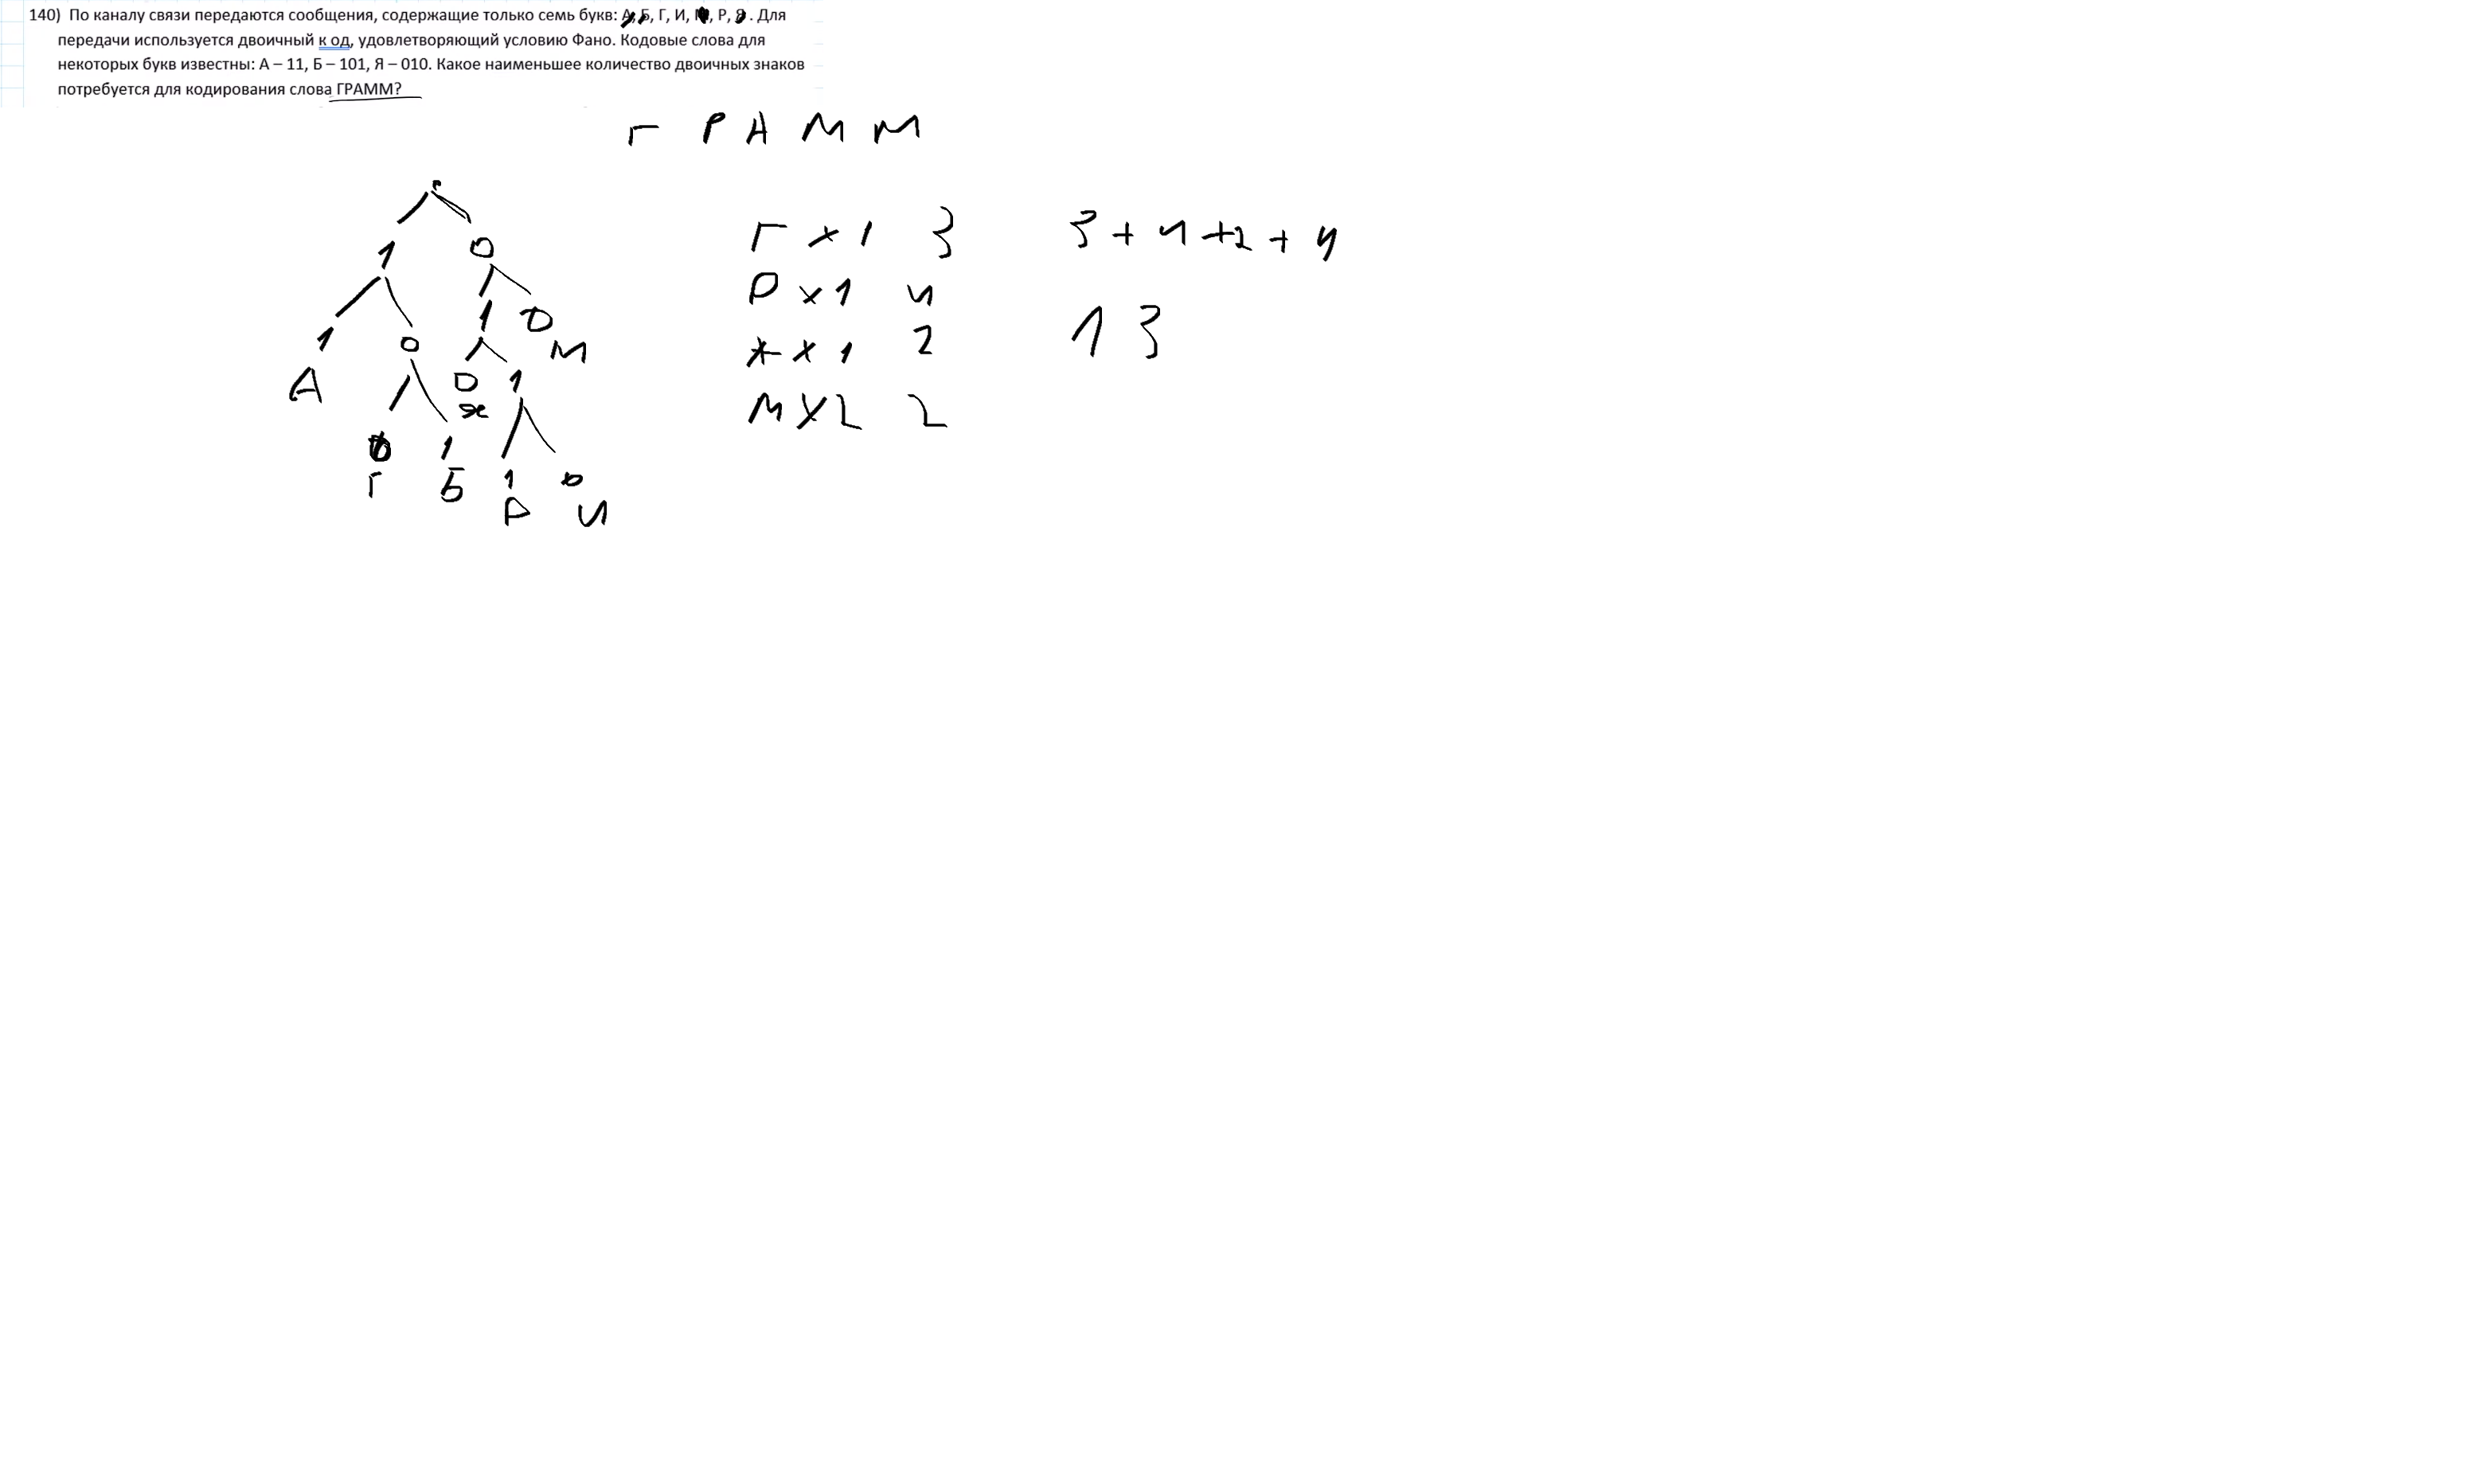 140) По каналу связи передаются сообщения, содержащие только семь букв: А, Б, Г, И, М, Р, Я . Для
передачи используется двоичный к од, удовлетворяющий условию Фано. Кодовые слова для
некоторых букв известны: А – 11, Б – 101, Я – 010. Какое наименьшее количество двоичных знаков
потребуется для кодирования слова ГРАММ?
Г Р А М М
1 0
1 0 1 0
А М
0 1
0 1 1 0
Г Б Р И
Г x 1 3
Р x 1 4
x 1 2
М x 2 2
3 + 4 + 2 + 4
13